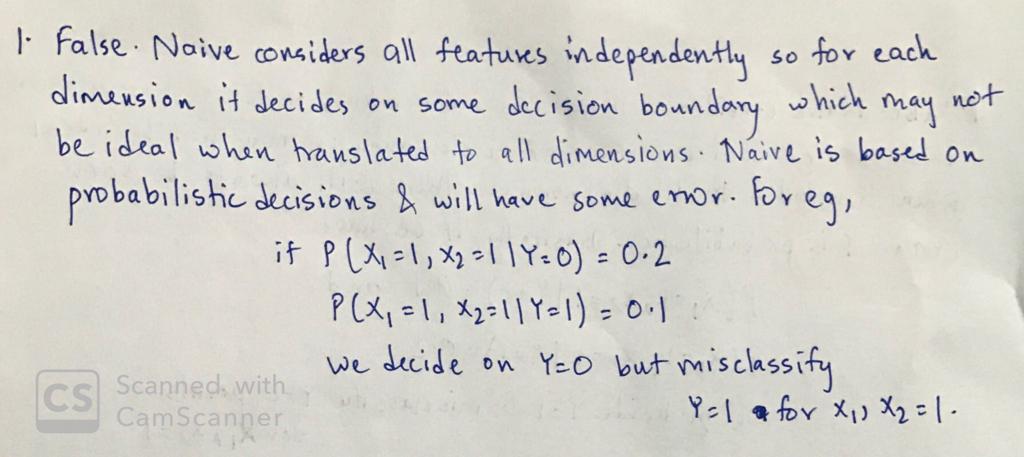 1. False. Naive considers all features independently so for each
dimension it decides on some decision boundary which may not
be ideal when translated to all dimensions. Naive is based on
probabilistic decisions & will have some error. For eg,
if P(X₁=1, X₂=1|Y=0) = 0.2
P(X₁=1, X₂=1|Y=1) = 0.1
we decide on Y=0 but misclassify
Y=1 for X₁, X₂=1.
CS Scanned with
CamScanner